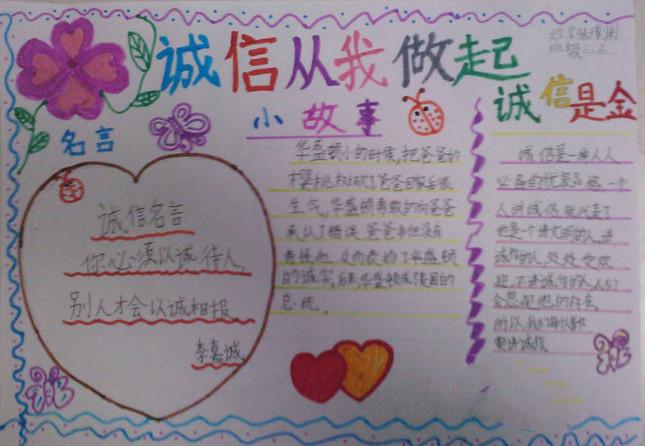 诚信从我做起
班级二.2
诚信是金
小故事
名言
诚信名言
你必须以诚待人,
别人才会以诚相报。
李嘉诚
华盛顿小的时候,把爸爸的
樱桃树砍了爸爸回家后很
生气,华盛顿勇敢的向爸爸
承认了错误,爸爸不但没有
责怪他,反而表扬了华盛顿
的诚实,后来,华盛顿成了美国的
总统。
诚信是一种人人
必备的优良品格,一个
人讲诚信,就代表了
他是个讲文明的人,讲
诚信的人,处处受欢
迎,不讲诚信的人,人们
会忽视他的存在,
所以,我们每个人都
要讲诚信。